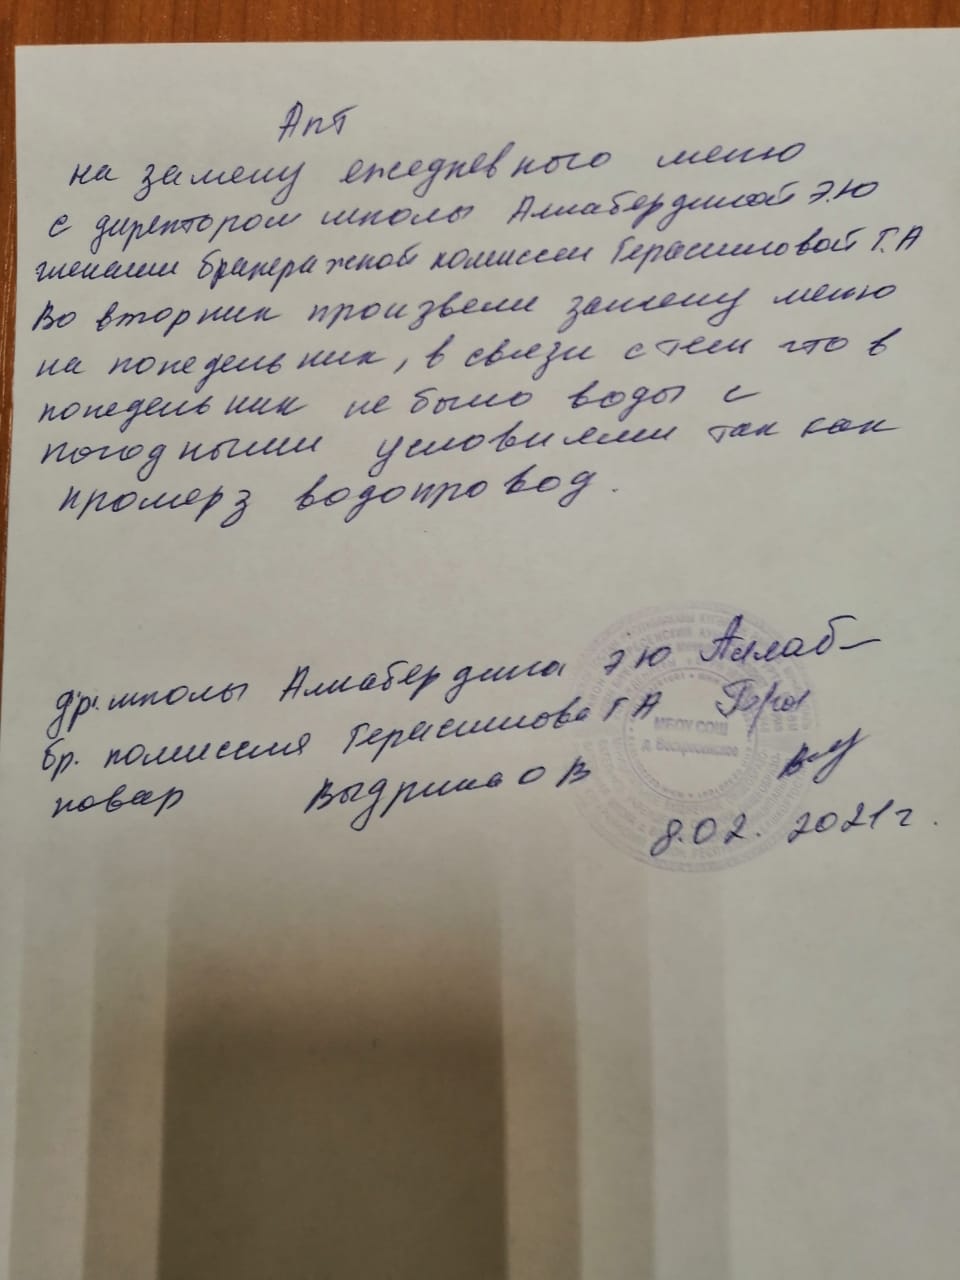 Акт
на замену ежедневного меню
с директором школы Алкабердиной Э.Ю
членами бракеражной комиссии Герасимовой Г.А
Во вторник произвели замену меню
на понедельник, в связи с тем что в
понедельник не было воды с
погодными условиями так как
промерз водопровод.
др. школы Алкабердина Э Ю
бр. комиссия Герасимова Г А
повар Выдрина О В
8.02. 2021 г.
МБОУ СОШ
д. Воскресенское